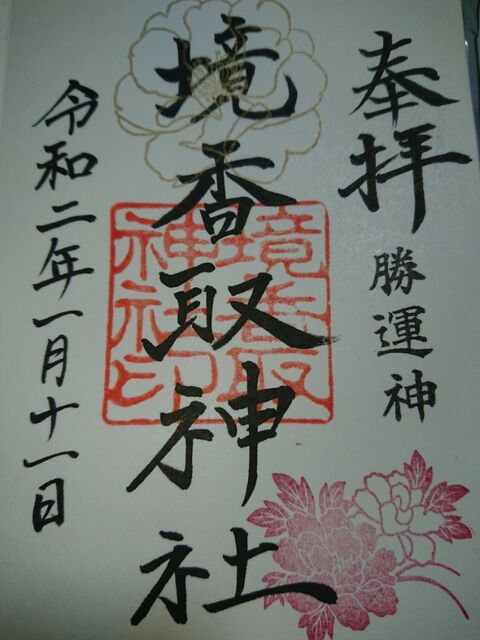 奉拝
勝運神
境香取神社
境香取
神社印
令和二年一月十一日